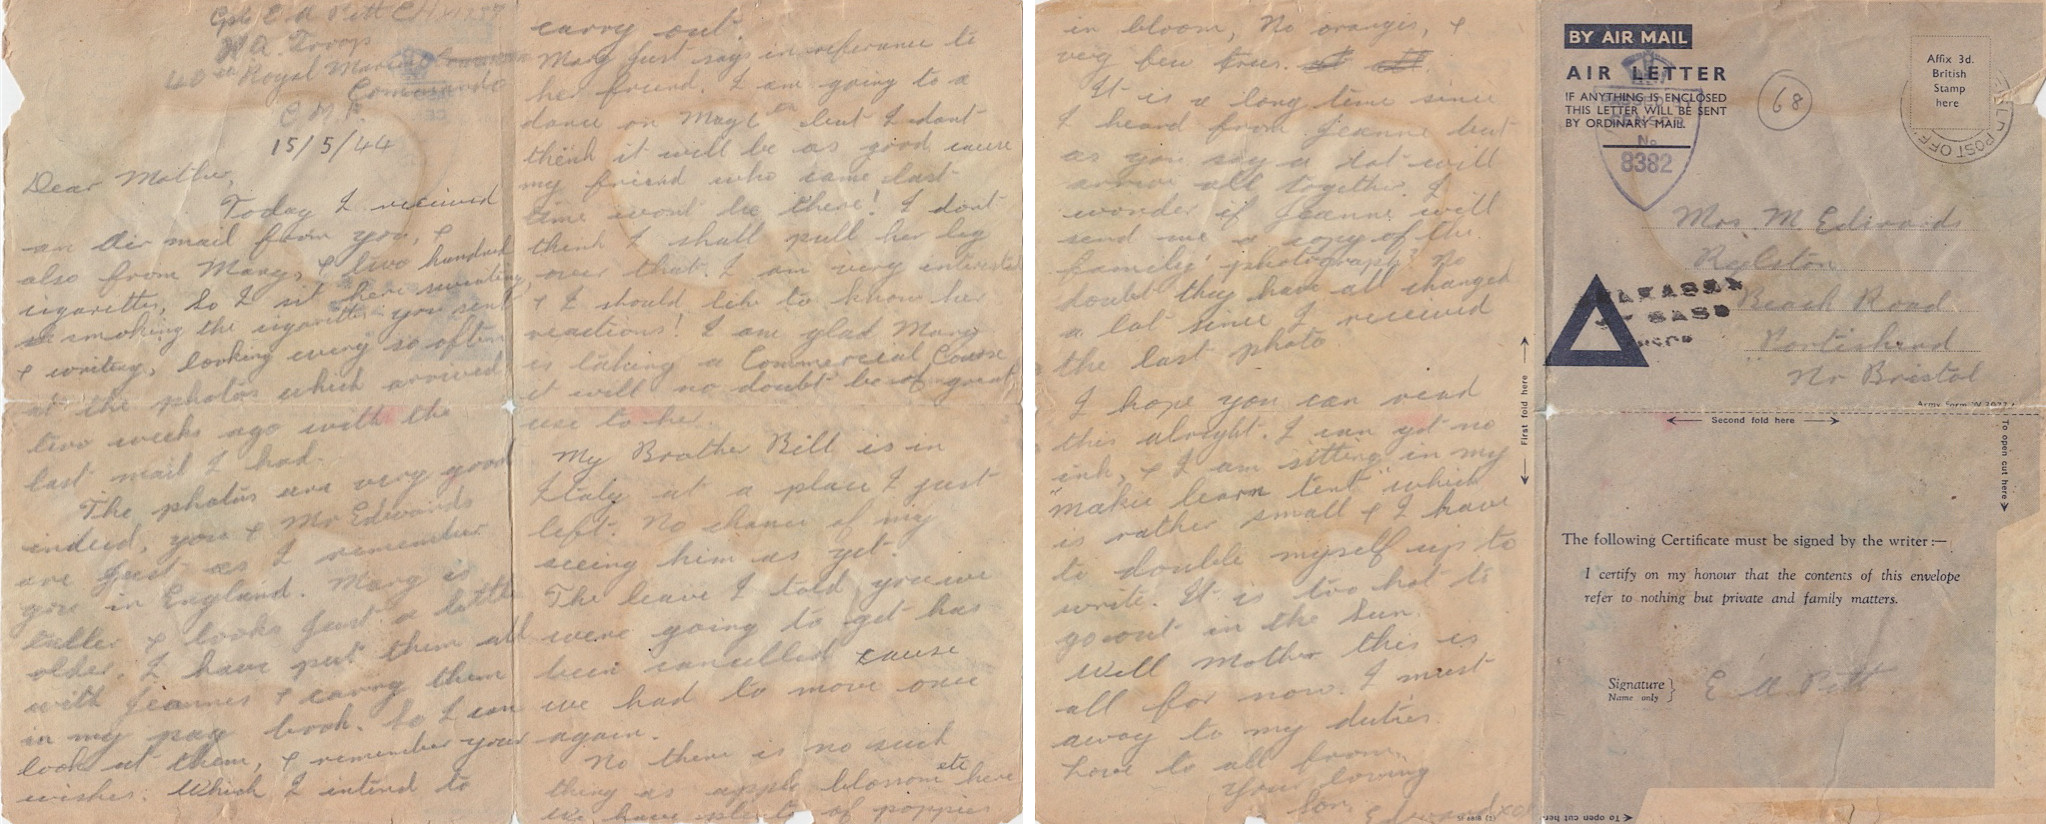 Cpl E A Pitt CH/X1757
HQ. Troop
40th Royal Marine Commando
Commando
C.M.F.
15/5/44
Dear Mother,
Today I received
an Air mail from you, &
also from Mary, & two hundred
cigarettes, So I sit here sweating,
smoking the cigarettes you sent
& writing, looking every so often
at the photos which arrived
two weeks ago with the
last mail I had.
The photos are very good
indeed, you & Mr Edwards
are just as I remember
you in England. Mary is
taller & looks just a little
older. I have put them all
with Jeannes & carry them
in my pay book. So I can
look at them, & remember your
wishes. Which I intend to
carry out.
Mary just says in referance to
her friend. I am going to a
dance on May 6th but I dont
think it will be as good cause
my friend who came last
time wont be there! I dont
think I shall pull her leg
over that. I am very interested
& I should like to know her
reactions! I am glad Mary
is taking a Commercial Course
it will no doubt be of great
use to her.
My Brother Bill is in
Italy at a place I just
left. No chance of my
seeing him as yet.
The leave I told you we
were going to get has
been cancelled cause
we had to move once
again.
No there is no such
thing as apple blossom etc here
We have plenty of poppies
in bloom, No oranges, &
very few trees.
It is a long time since
I heard from Jeanne but
as you say a lot will
arrive all together. I
wonder if Jeanne will
send me a copy of the
family photograph? No
doubt they have all changed
a lot since I received
the last photo.
I hope you can read
this alright. I can get no
ink, & I am sitting in my
"makee learn tent" which
is rather small & I have
to double myself up to
write. It is too hot to
go out in the sun.
Well Mother this is
all for now. I must
away to my duties.
Love to all from,
Your loving
Son,
Edward xox
First fold here
BY AIR MAIL
AIR LETTER
IF ANYTHING IS ENCLOSED
THIS LETTER WILL BE SENT
BY ORDINARY MAIL.
No
8382
68
Affix 3d.
British
Stamp
here
FIELD POST OFF
Mrs. M. Edwards
Rylston
Beach Road
Portishead
Nr Bristol
Army Form W 3077
Second fold here
To open cut here
The following Certificate must be signed by the writer:—
I certify on my honour that the contents of this envelope
refer to nothing but private and family matters.
Signature
Name only
E A Pitt
To open cut here